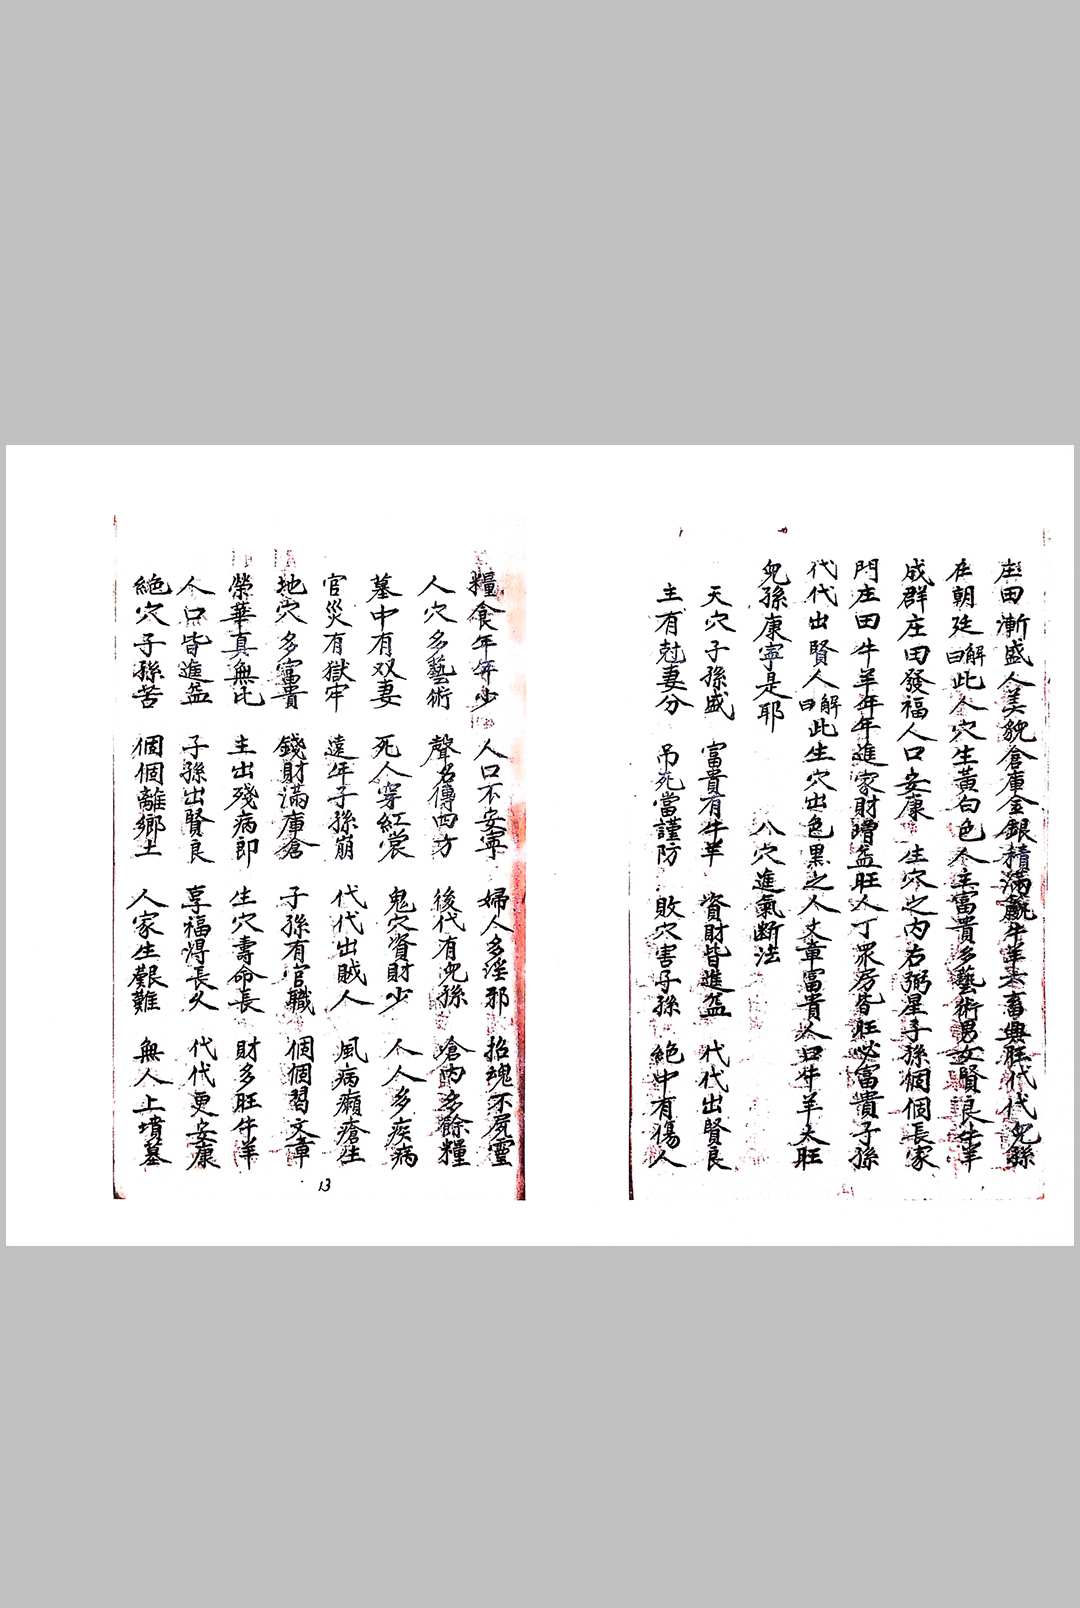 庄田漸盛人美貌倉庫金銀積滿觥牛羊六畜興旺代代兒孫
在朝廷解曰此人穴生黃白色人主富貴多藝術男女賢良牛羊
成群庄田發福人口安康 生穴之內右弼星子孫個個長家
門庄田牛羊年年進家財增益旺人丁衆房皆旺必富貴子孫
代代出賢人解曰此生穴出色黑之人文章富貴人口牛羊大旺
兒孫康寧是耶 八穴進氣斷法
天穴子孫盛 富貴有牛羊 資財皆進益 代代出賢良
主有尅妻分 吊死當謹防 敗穴害子孫 絕中有傷人
糧食年年少 人口不安寧 婦人多淫邪 招魂不屍靈
人穴多藝術 聲名傳四方 後代有兒孫 倉內多餘糧
墓中有双妻 死人穿紅裳 鬼穴資財少 人人多疾病
官災有獄牢 遠年子孫崩 代代出賊人 風病癩瘡生
地穴多富貴 錢財滿庫倉 子孫有官職 個個習文章
榮華真無比 主出殘病郎 生穴壽命長 財多旺牛羊
人口皆進益 子孫出賢良 享福得長久 代代更安康
絕穴子孫苦 個個離鄉土 人家生艱難 無人上墳墓
13